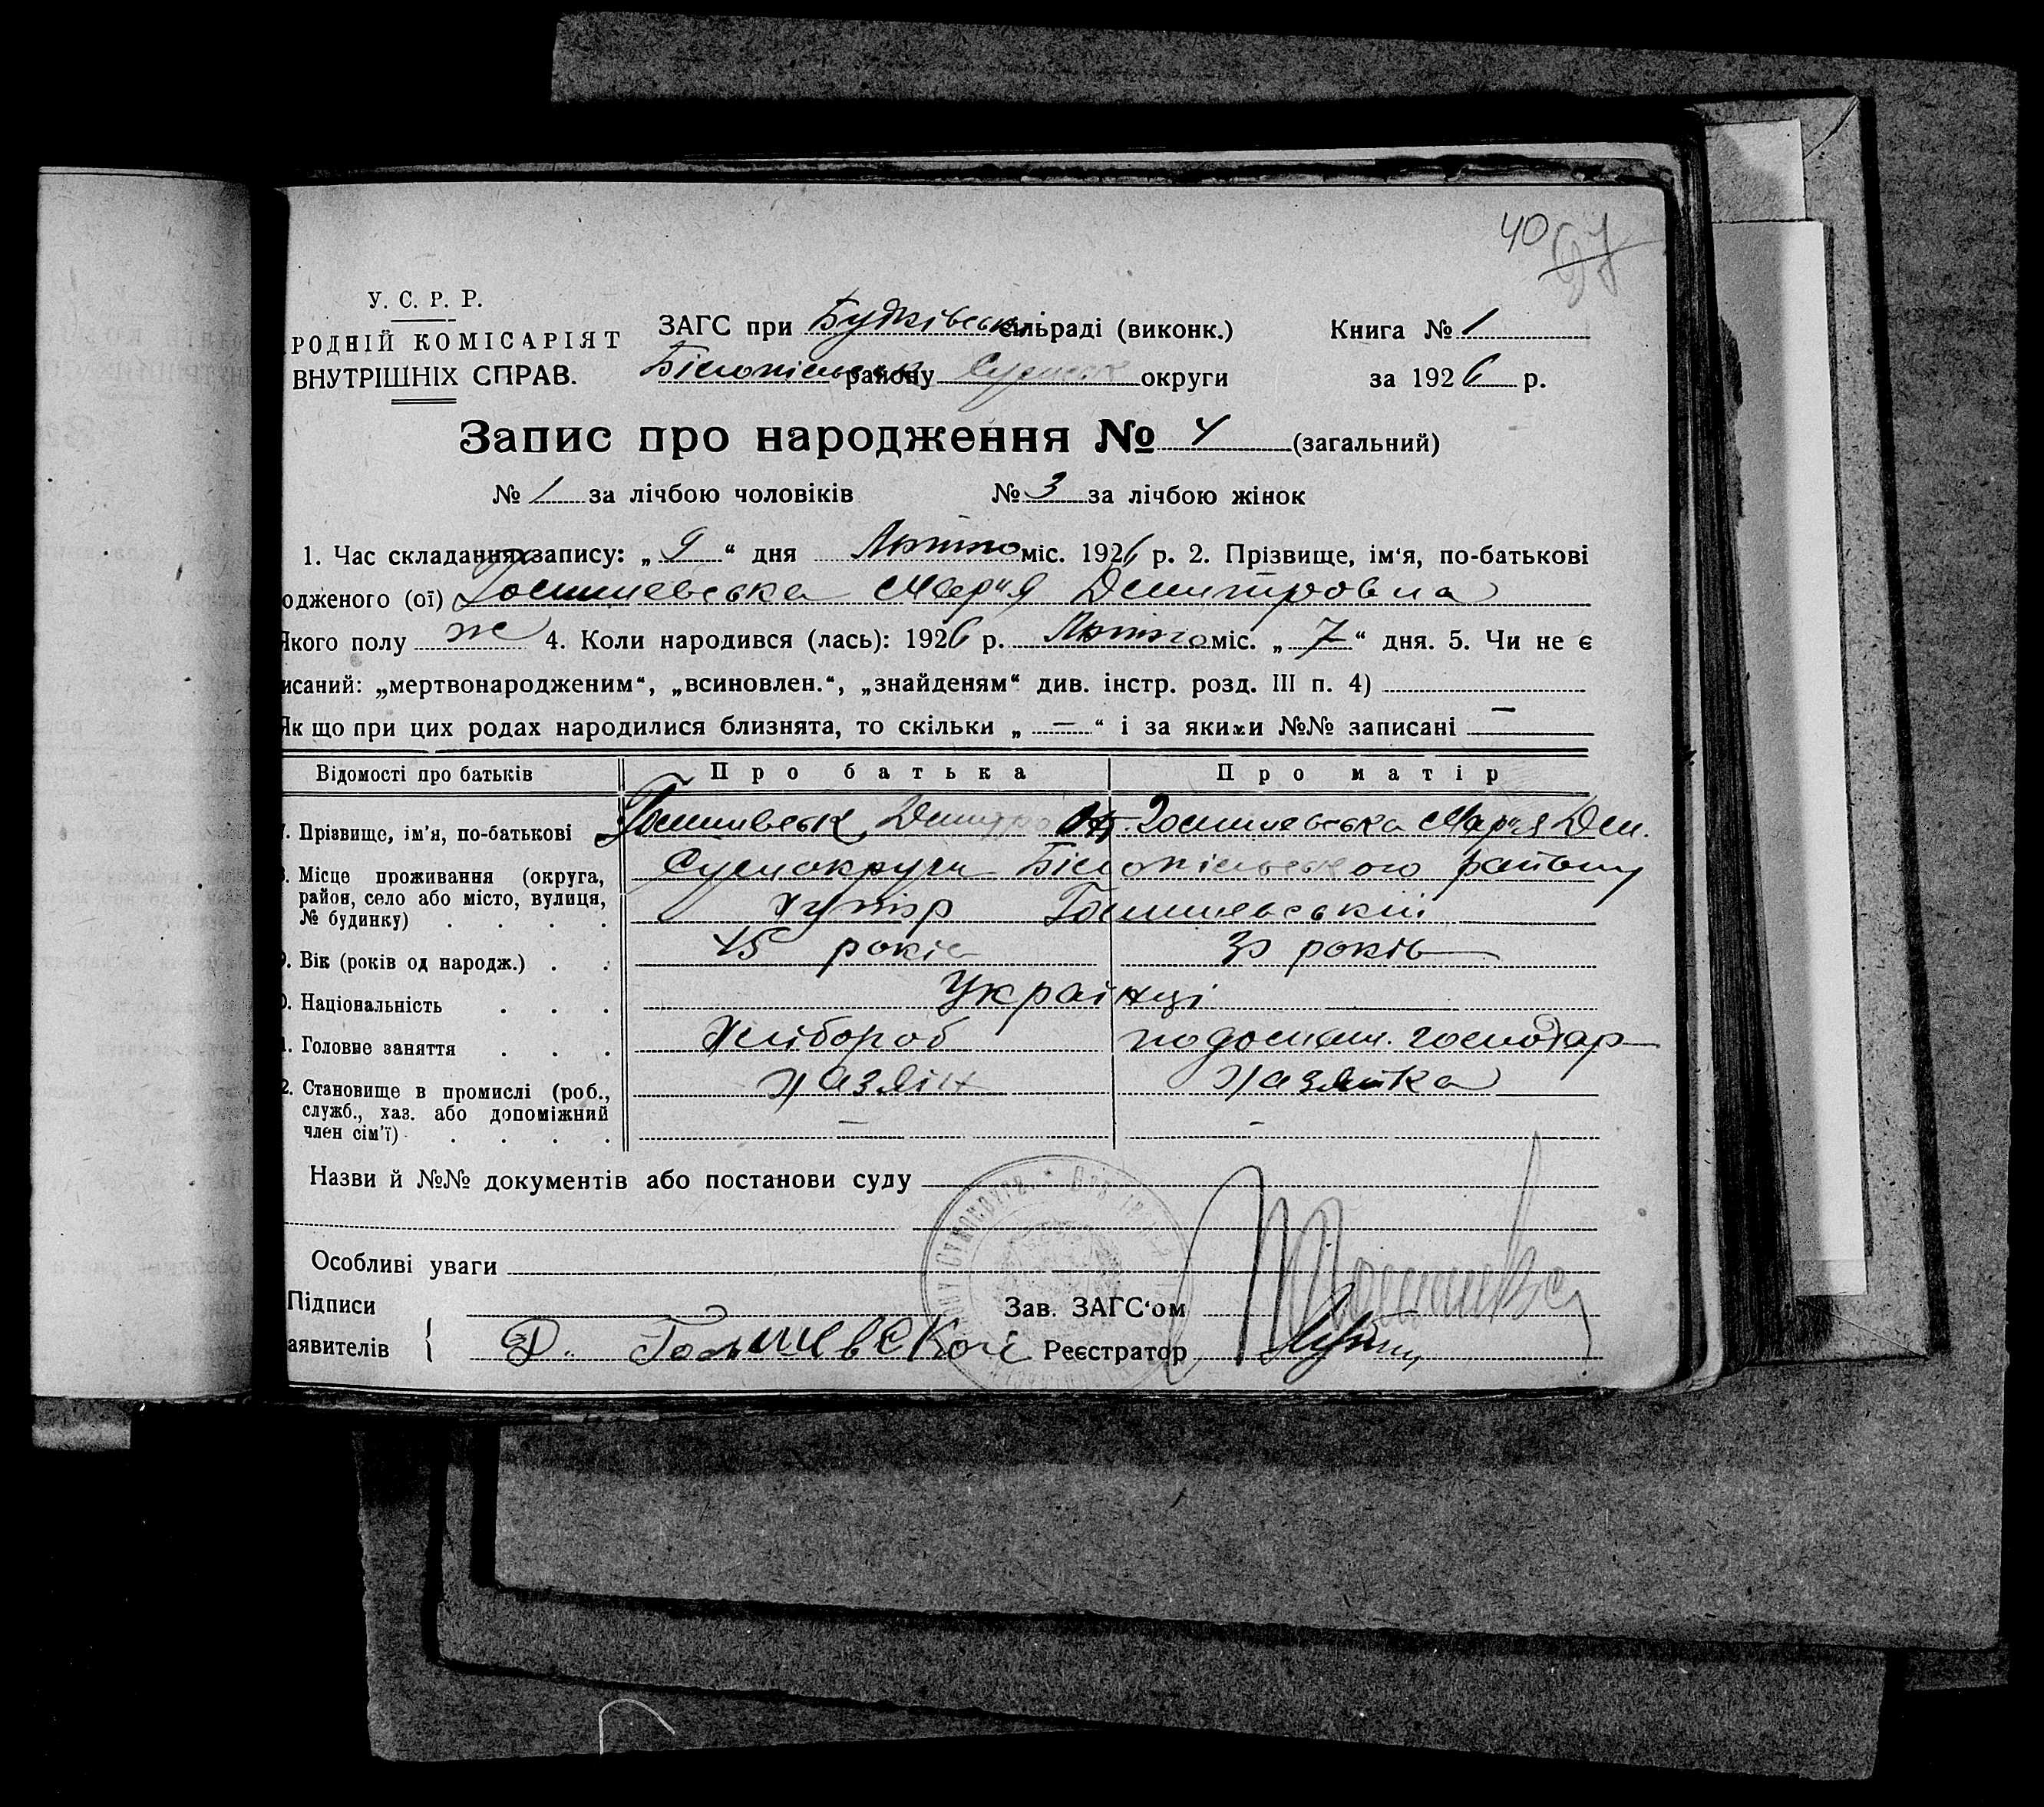 40
97
У. С. Р. Р.
РОДНІЙ КОМІСАРІЯТ
ВНУТРІШНІХ СПРАВ.
ЗАГС при Будківськ сільраді (виконк.)
Книга № 1
Білопільськ району Сумськ округи
за 1926 р.
Запис про народження № 4 (загальний)
№ 1 за лічбою чоловіків № 3 за лічбою жінок
1. Час складання запису: „ 9 “ дня Лютого міс. 1926 р. 2. Прізвище, ім'я, по-батькові
одженого (ої) Мария Дмитровна
Якого полу ж 4. Коли народився (лась): 1926 р. Лютого міс. „ 7 “ дня. 5. Чи не є
исаний: „мертвонародженим“, „всиновлен.“, „знайденям“ див. інстр. розд. III п. 4)
Як що при цих родах народилися близнята, то скільки „ — “ і за якими №№ записані —
Відомості про батьків
Про батька
Про матір
7. Прізвище, ім'я, по-батькові
Дмитро
Мария Дем.
8. Місце проживання (округа,
район, село або місто, вулиця,
№ будинку) . . . .
Сумокруги Білопільського району
Хутір
9. Вік (років од народж.) . .
45 років
30 років
0. Національність . . .
Українці
1. Головне заняття . . .
Хлібороб
по домашн. господар
2. Становище в промислі (роб.,
служб., хаз. або допоміжний
член сім'ї) . . . .
хазяїн
хазяйка
—
-
Назви й №№ документів або постанови суду
Особливі уваги
Підписи
аявителів
Д.
Зав. ЗАГС'ом
Реєстратор